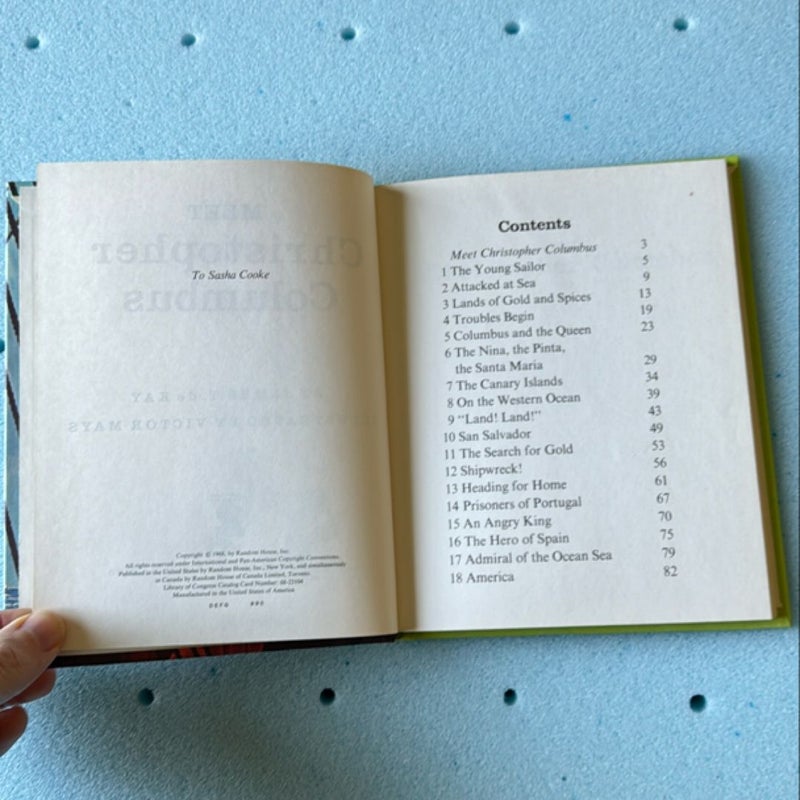 To Sasha Cooke
Copyright © 1968, by Random House, Inc.
All rights reserved under International and Pan-American Copyright Conventions.
Published in the United States by Random House, Inc., New York, and simultaneously
in Canada by Random House of Canada Limited, Toronto.
Library of Congress Catalog Card Number:
Manufactured in the United States of America
DEFG 890
Contents
Meet Christopher Columbus 3
1 The Young Sailor 5
2 Attacked at Sea 9
3 Lands of Gold and Spices 13
4 Troubles Begin 19
5 Columbus and the Queen 23
6 The Nina, the Pinta,
the Santa Maria 29
7 The Canary Islands 34
8 On the Western Ocean 39
9 "Land! Land!" 43
10 San Salvador 49
11 The Search for Gold 53
12 Shipwreck! 56
13 Heading for Home 61
14 Prisoners of Portugal 67
15 An Angry King 70
16 The Hero of Spain 75
17 Admiral of the Ocean Sea 79
18 America 82